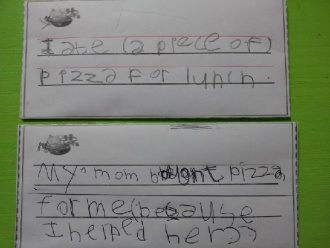 I ate (a piece of)
pizza for lunch.
My mom bought pizza
for me (because
I helped her.)